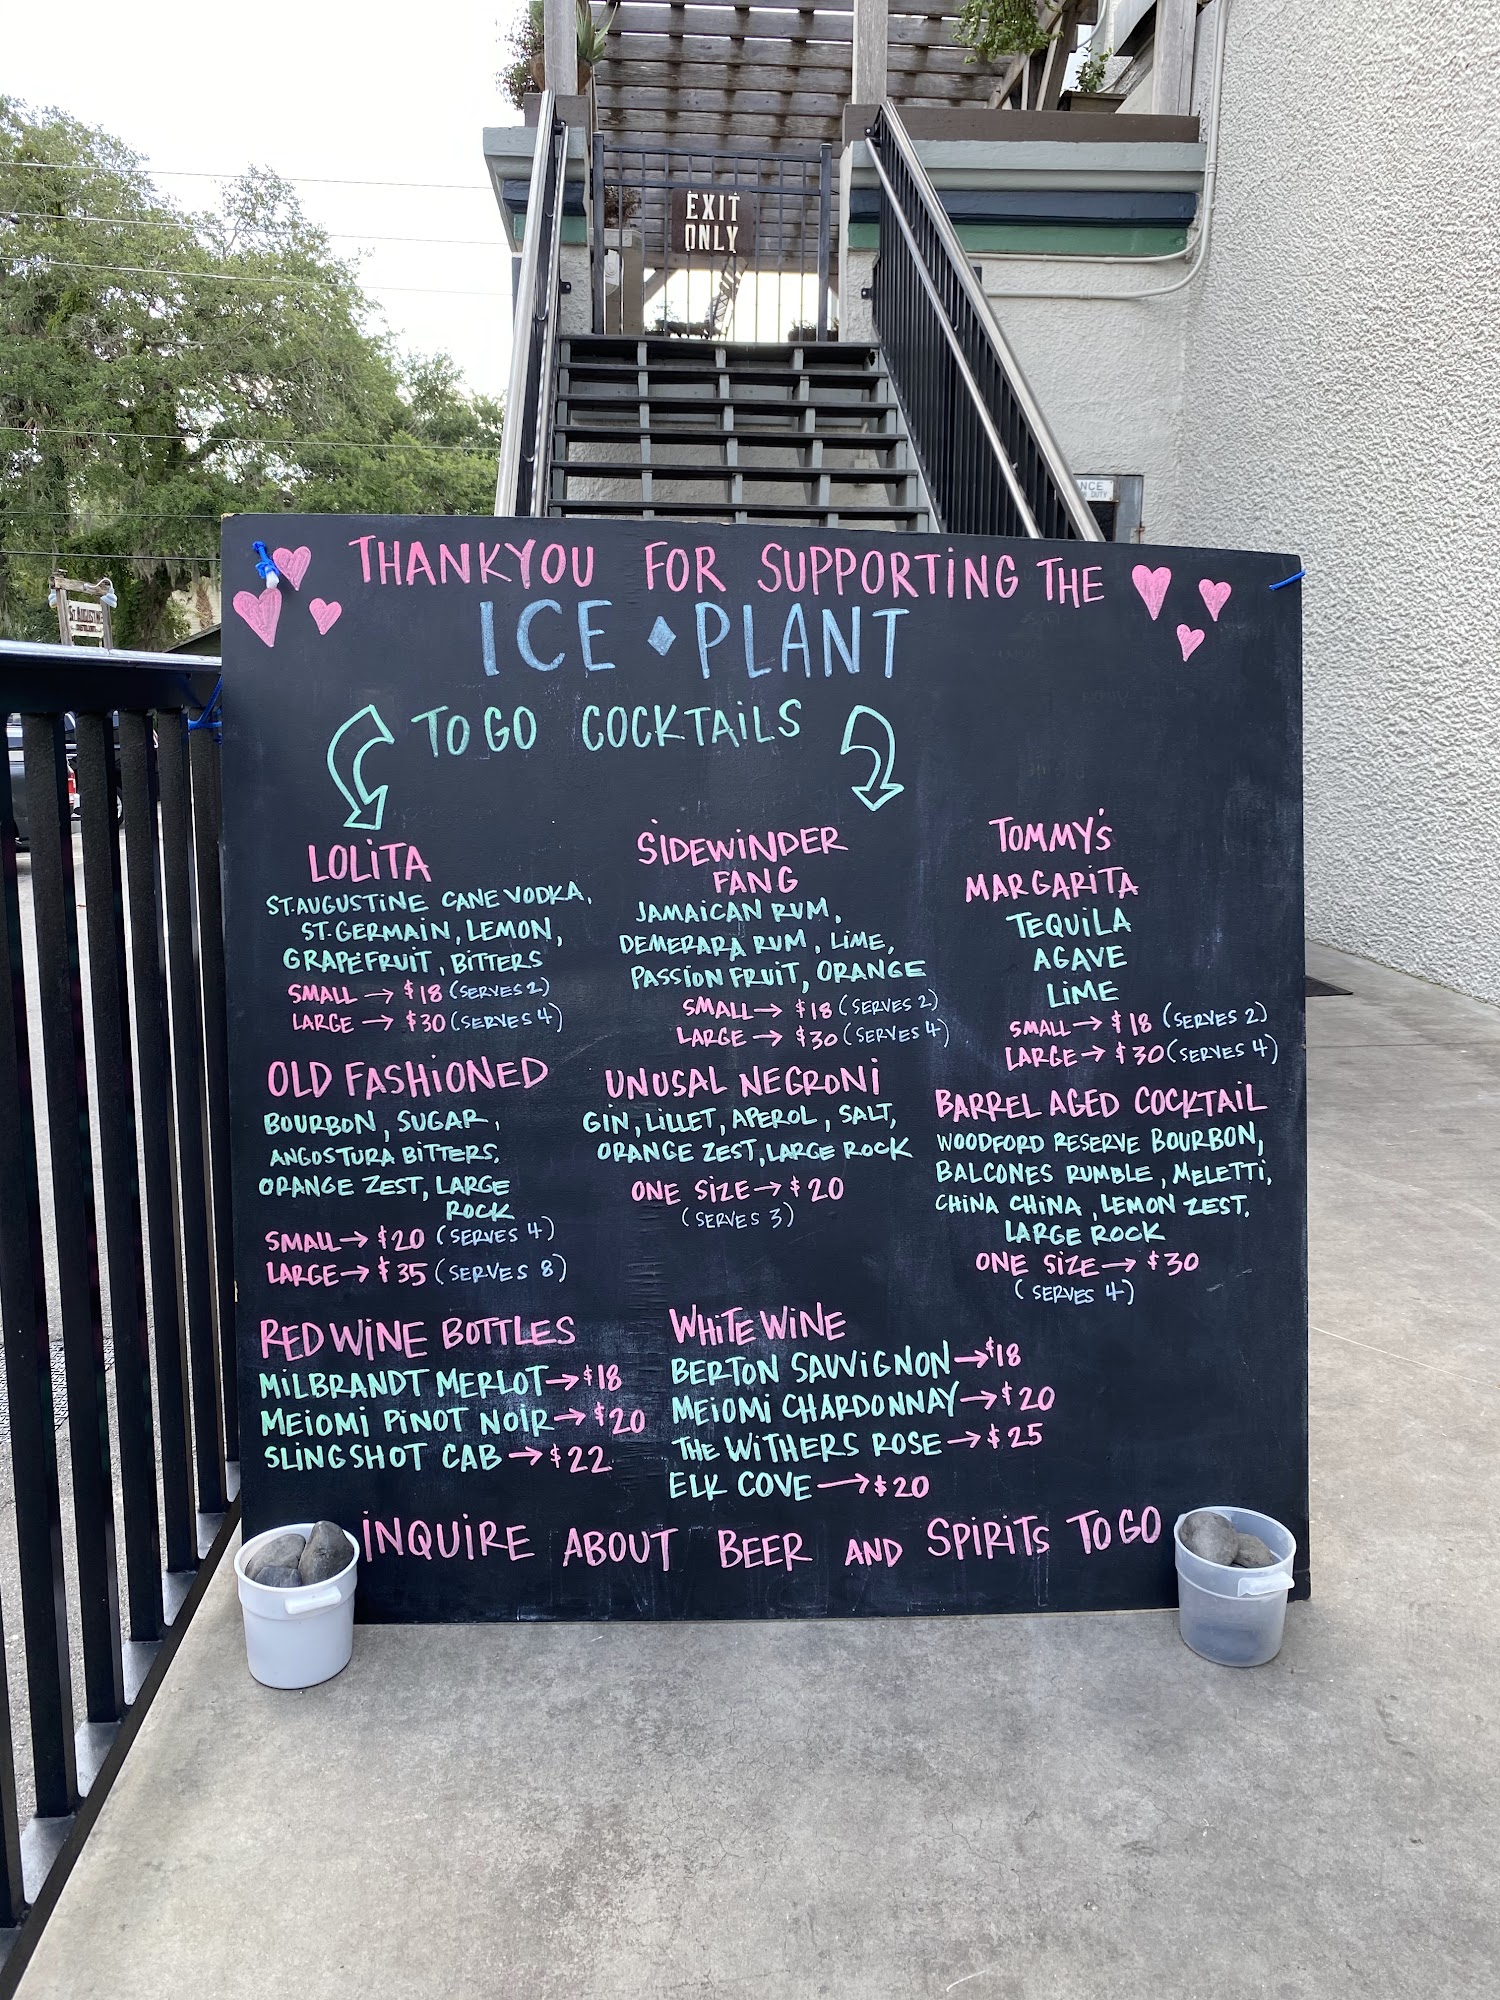 EXIT
ONLY
NCE
DUTY
ST. AUGUSTINE
THANKYOU FOR SUPPORTING THE
ICE PLANT
TO GO COCKTAILS
LOLITA
ST. AUGUSTINE CANE VODKA,
ST. GERMAIN, LEMON,
GRAPEFRUIT, BITTERS
SMALL → $18 (SERVES 2)
LARGE → $30 (SERVES 4)
SIDEWINDER
FANG
JAMAICAN RUM,
DEMERARA RUM, LIME,
PASSION FRUIT, ORANGE
SMALL → $18 (SERVES 2)
LARGE → $30 (SERVES 4)
TOMMY's
MARGARITA
TEQUILA
AGAVE
LIME
SMALL → $18 (SERVES 2)
LARGE → $30 (SERVES 4)
OLD FASHIONED
BOURBON, SUGAR,
ANGOSTURA BITTERS,
ORANGE ZEST, LARGE
ROCK
SMALL → $20 (SERVES 4)
LARGE → $35 (SERVES 8)
UNUSAL NEGRONI
GIN, LILLET, APEROL, SALT,
ORANGE ZEST, LARGE ROCK
ONE SIZE → $20
(SERVES 3)
BARREL AGED COCKTAIL
WOODFORD RESERVE BOURBON,
BALCONES RUMBLE, MELETTI,
CHINA CHINA, LEMON ZEST,
LARGE ROCK
ONE SIZE → $30
(SERVES 4)
RED WINE BOTTLES
MILBRANDT MERLOT → $18
MEIOMI PINOT NOIR → $20
SLINGSHOT CAB → $22
WHITE WINE
BERTON SAUVIGNON → $18
MEIOMI CHARDONNAY → $20
THE WITHERS ROSE → $25
ELK COVE → $20
INQUIRE ABOUT BEER AND SPIRITS TO GO